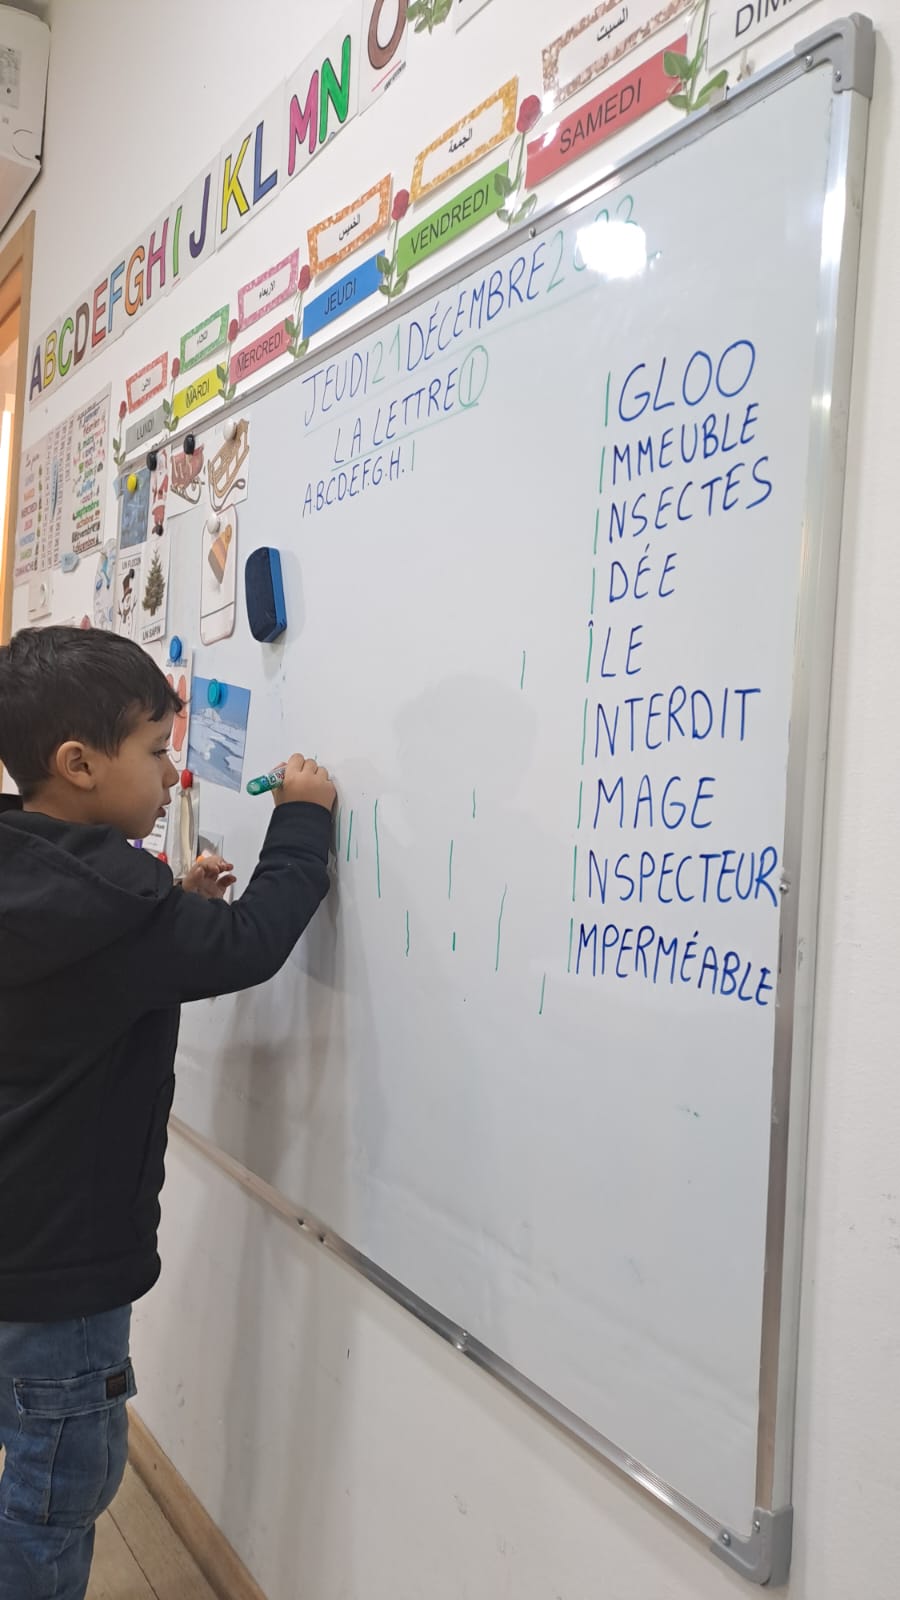 ABCDEFGHIJKLMNO
السبت
الجمعة
الخميس
الأربعاء
الثلاثاء
الاثنين
LUNDI
MARDI
MERCREDI
JEUDI
VENDREDI
SAMEDI
JEUDI 21 DÉCEMBRE 2023
LA LETTRE I
A.B.C.D.E.F.G.H.I
IGLOO
IMMEUBLE
INSECTES
IDÉE
ÎLE
INTERDIT
IMAGE
INSPECTEUR
IMPERMÉABLE
UN FLOCON
UN SAPIN